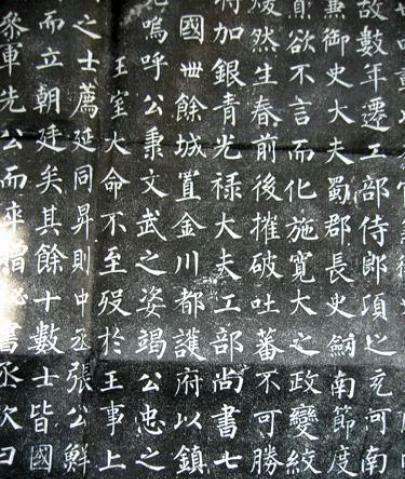 故數年遷工部侍郎項之充河南
兼御史大夫蜀郡長史劒南節度
欲不言而化施寬大之政變絞
然生春前後摧破吐蕃不可勝
加銀青光祿大夫工部尚書七
國卌餘城置金川都護府以鎮
嗚呼公秉文武之姿竭公忠之
王室大命不至歿於王事上
之士薦延同昇則中丞張公鮮
而立朝廷矣其餘十數士皆國
叅軍先公而卒贈秘書丞次曰